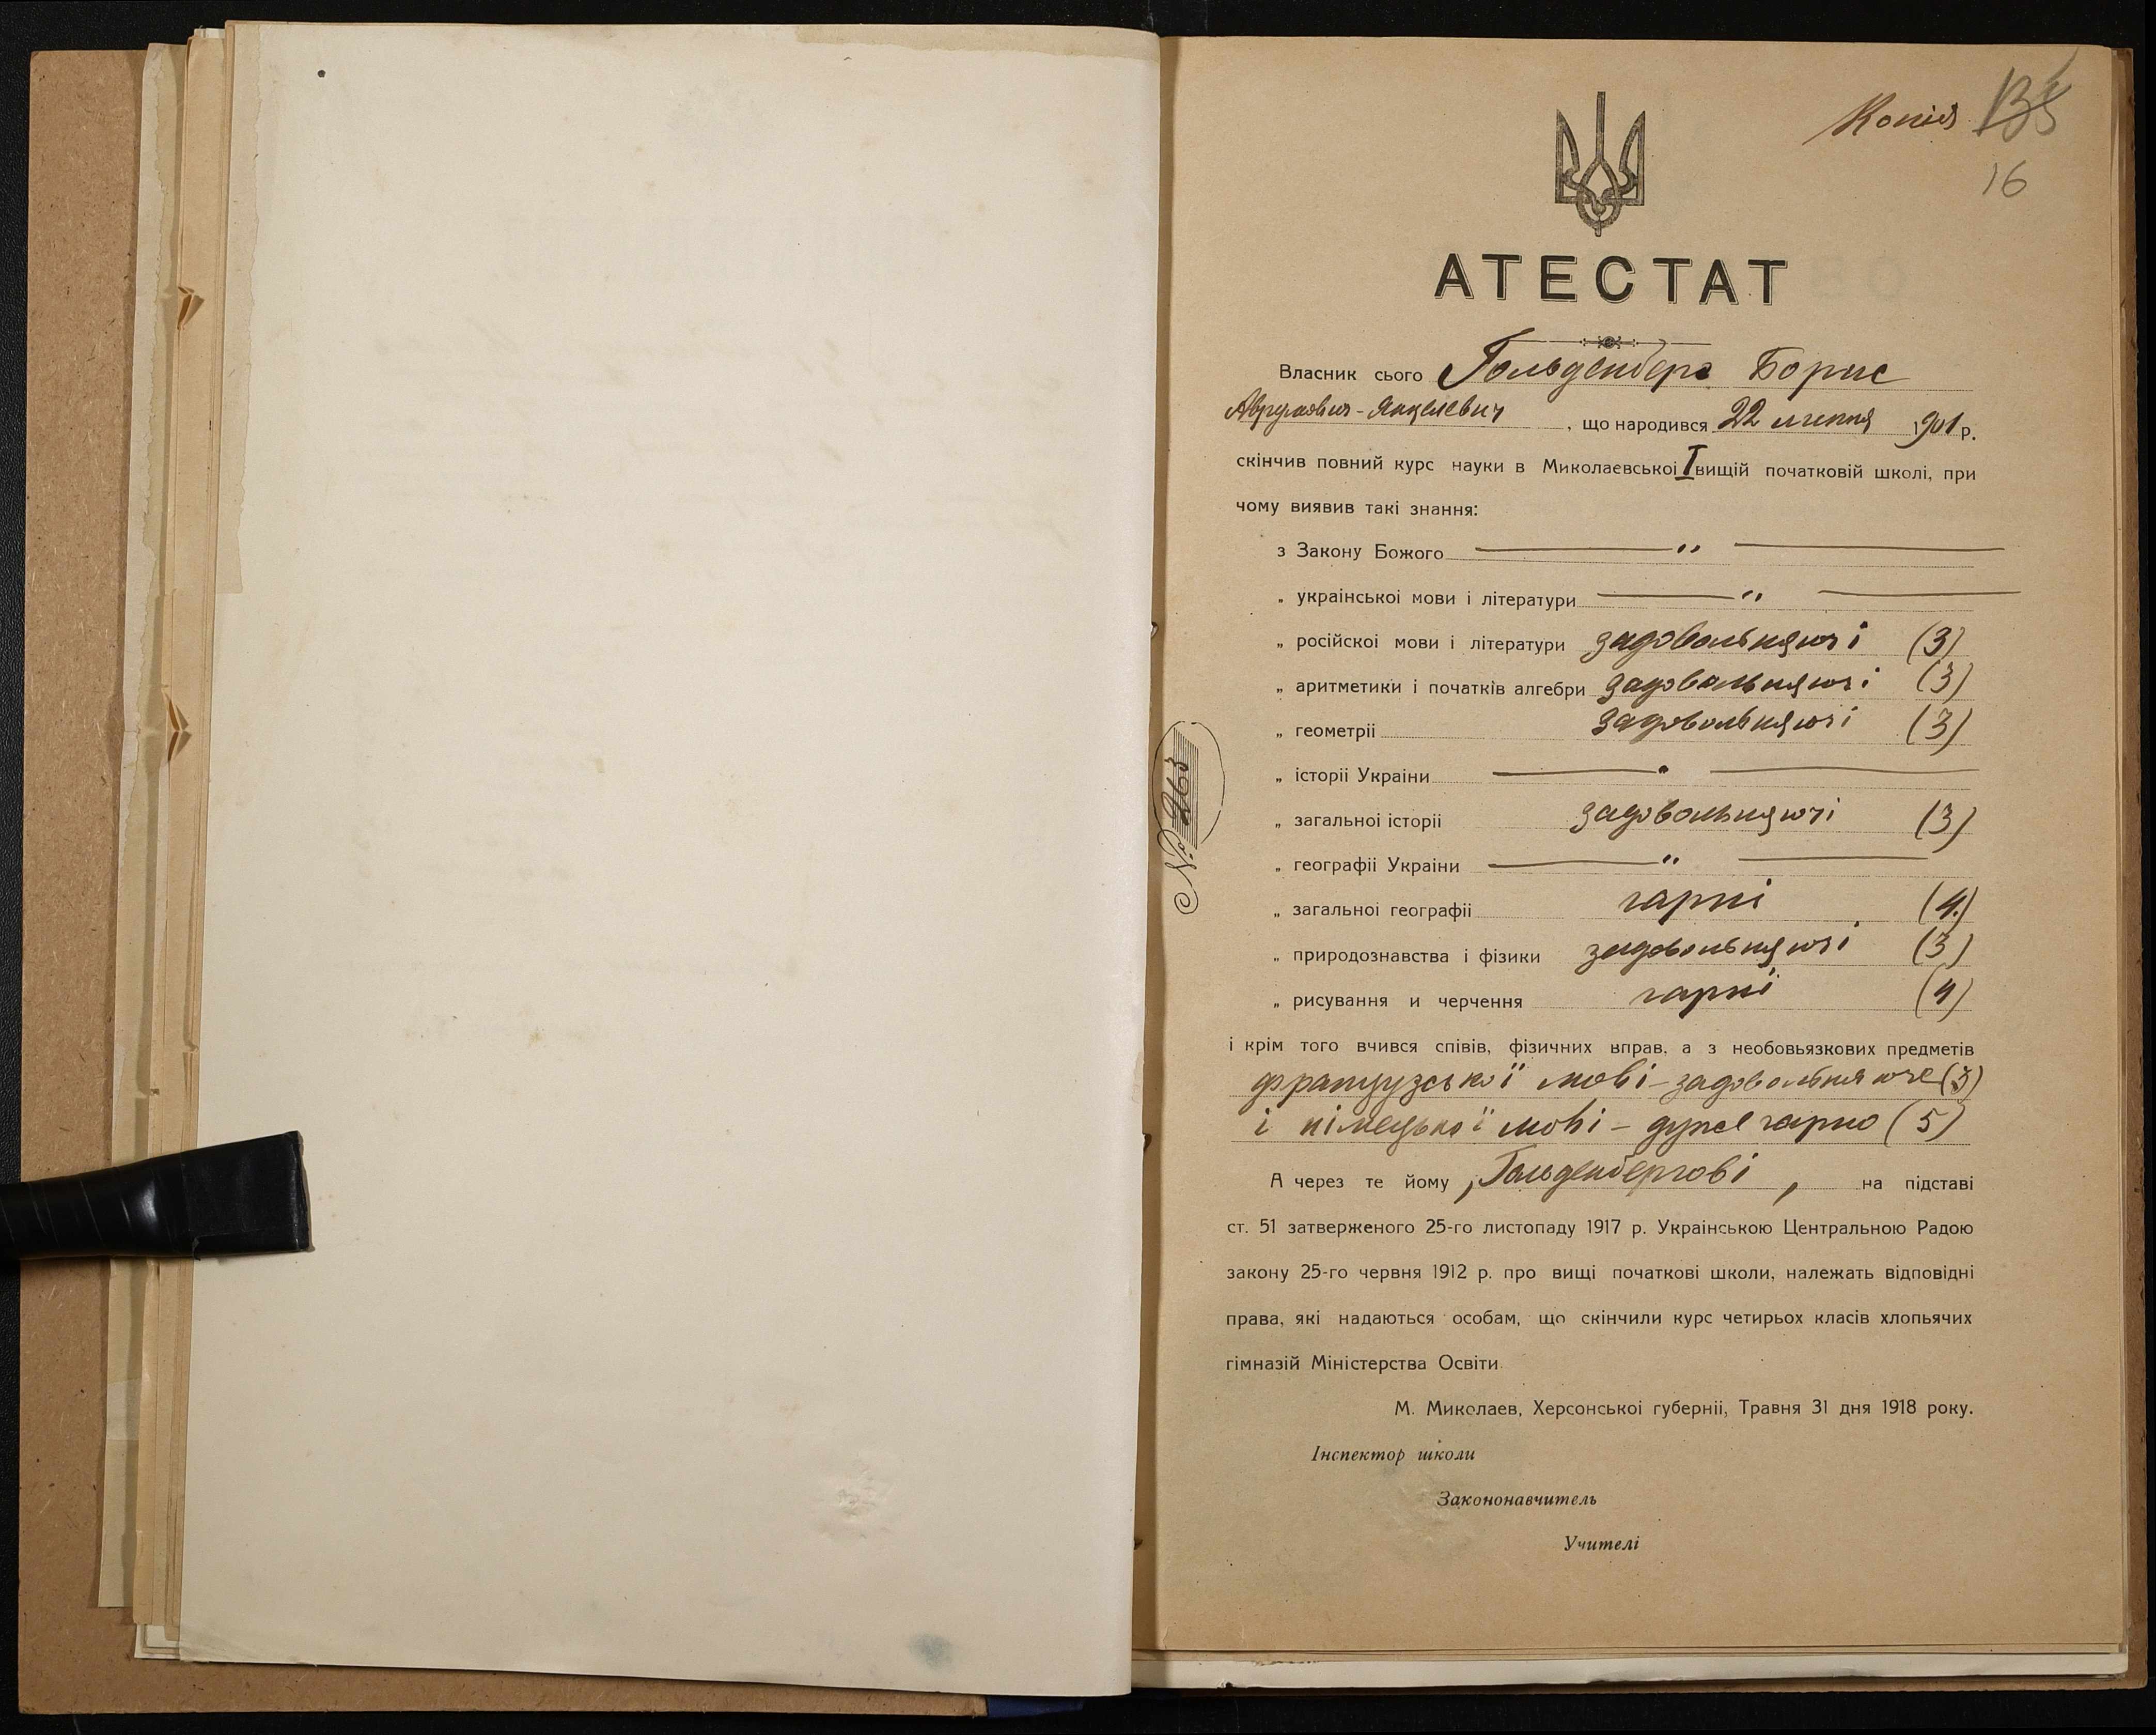 Копія 135
16
АТЕСТАТ
Власник сього Гольденберг Борис
Аврумович-Янкелевич, що народився 22 липня 1901 р.
скінчив повний курс науки в Миколаевськоі І вищій початковій школі, при
чому виявив такі знання:
з Закону Божого — „ —
„ украінськоі мови і літератури — „ —
„ російскоі мови і літератури задовольняючі (3)
„ аритметики і початків алгебри задовольняючі (3)
„ геометріі задовольняючі (3)
„ історіі Украіни — „ —
„ загальноі історіі задовольняючі (3)
„ географіі Украіни — „ —
„ загальноі географіі гарні (4)
„ природознавства і фізики задовольняючі (3)
„ рисування и черчення гарні (4)
і крім того вчився співів, фізичних вправ, а з необовьязкових предметів
французської мові - задовольняюче (3)
і німецької мові - дуже гарно (5)
А через те йому, Гольденбергові, на підставі
ст. 51 затверженого 25-го листопаду 1917 р. Украінською Центральною Радою
закону 25-го червня 1912 р. про вищі початкові школи, належать відповідні
права, які надаються особам, що скінчили курс четирьох класів хлопьячих
гімназій Міністерства Освіти.
М. Миколаев, Херсонськоі губерніі, Травня 31 дня 1918 року.
Інспектор школи
Закононавчитель
Учителі
№ 263